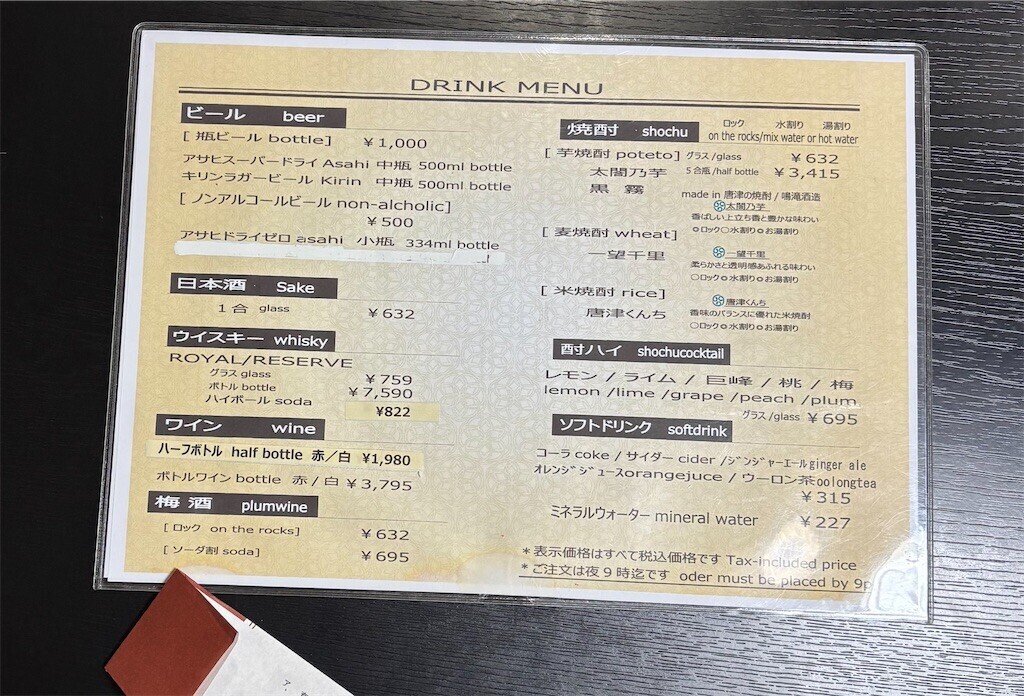 DRINK MENU
ビール beer
[ 瓶ビール bottle] ￥1,000
アサヒスーパードライ Asahi 中瓶 500ml bottle
キリンラガービール Kirin 中瓶 500ml bottle
[ ノンアルコールビール non-alcholic]
￥500
アサヒドライゼロ asahi 小瓶 334ml bottle
日本酒 Sake
1合 glass ￥632
ウイスキー whisky
ROYAL/RESERVE
グラス glass ￥759
ボトル bottle ￥7,590
ハイボール soda ¥822
ワイン wine
ハーフボトル half bottle 赤／白 ¥1,980
ボトルワイン bottle 赤 / 白 ￥3,795
梅 酒 plumwine
[ ロック on the rocks] ￥632
[ ソーダ割 soda] ￥695
焼酎 shochu ロック 水割り 湯割り
on the rocks/mix water or hot water
[ 芋焼酎 poteto] グラス /glass ￥632
太閤乃芋 5合瓶 /half bottle ￥3,415
黒 霧 made in 唐津の焼酎 / 鳴滝酒造
太閤乃芋
香ばしい上立ち香と豊かな味わい
◎ロック○水割り◎お湯割り
[ 麦焼酎 wheat]
一望千里 一望千里
柔らかさと透明感あふれる味わい
○ロック◎水割り◎お湯割り
[ 米焼酎 rice]
唐津くんち 唐津くんち
香味のバランスに優れた米焼酎
○ロック◎水割り◎お湯割り
酎ハイ shochucocktail
レモン / ライム / 巨峰 / 桃 / 梅
lemon /lime /grape /peach /plum
グラス /glass ￥695
ソフトドリンク softdrink
コーラ coke / サイダー cider /ジンジャーエールginger ale
オレンジジュースorangejuce / ウーロン茶oolongtea
￥315
ミネラルウォーター mineral water ￥227
＊表示価格はすべて税込価格です Tax-included price
＊ご注文は夜９時迄です oder must be placed by 9p
ア、